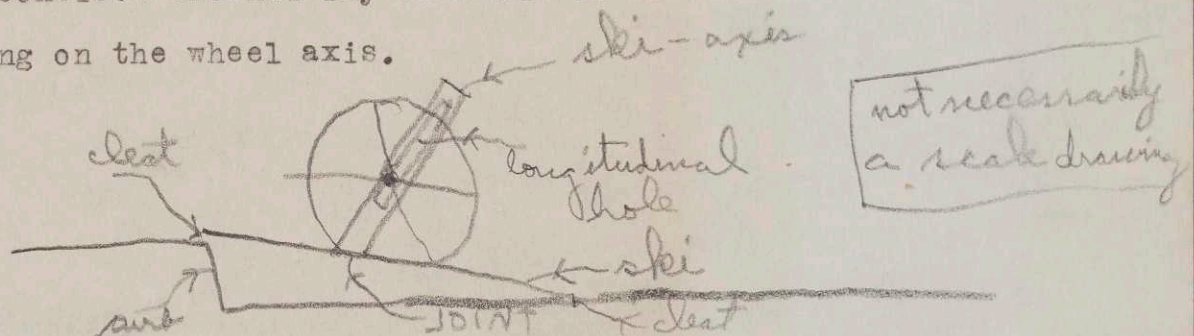 ng on the wheel axis.
ski-axis
not necessarily
a scale drawing
cleat
longitudinal
hole
ski
curb
JOINT
cleat